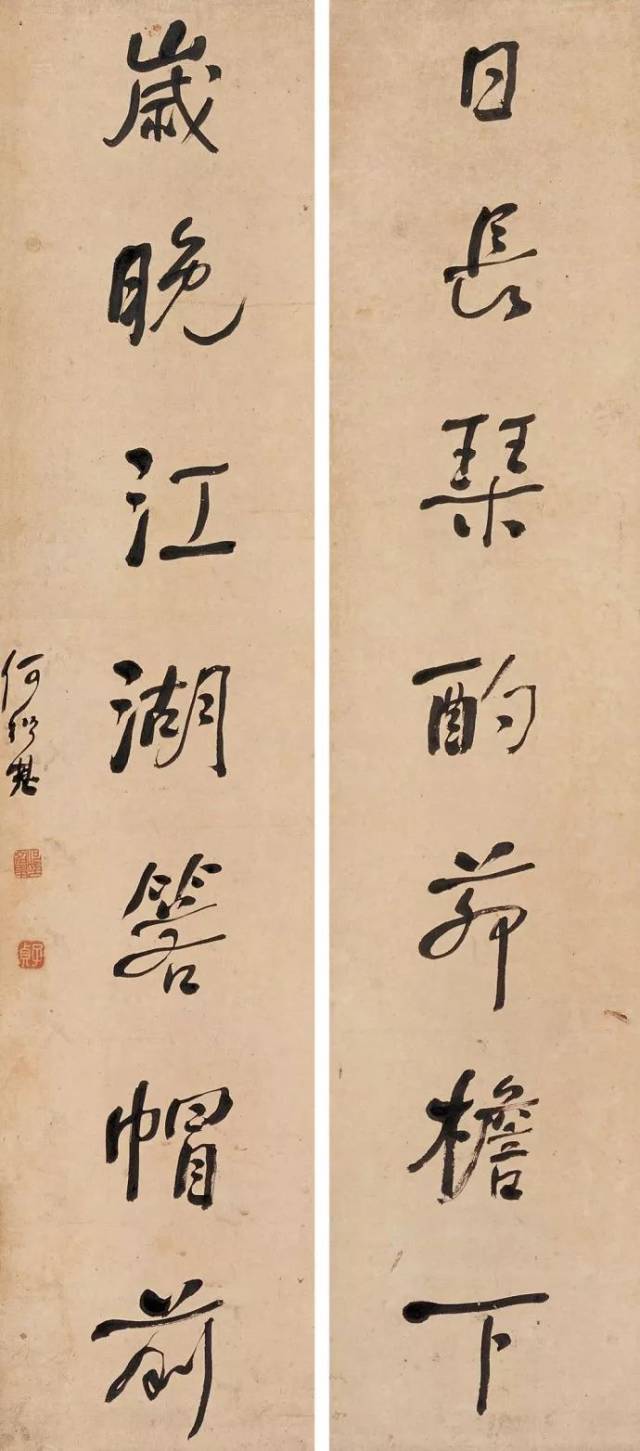 日長琴酌茅檐下
歲晚江湖箬帽前
何紹基
子貞